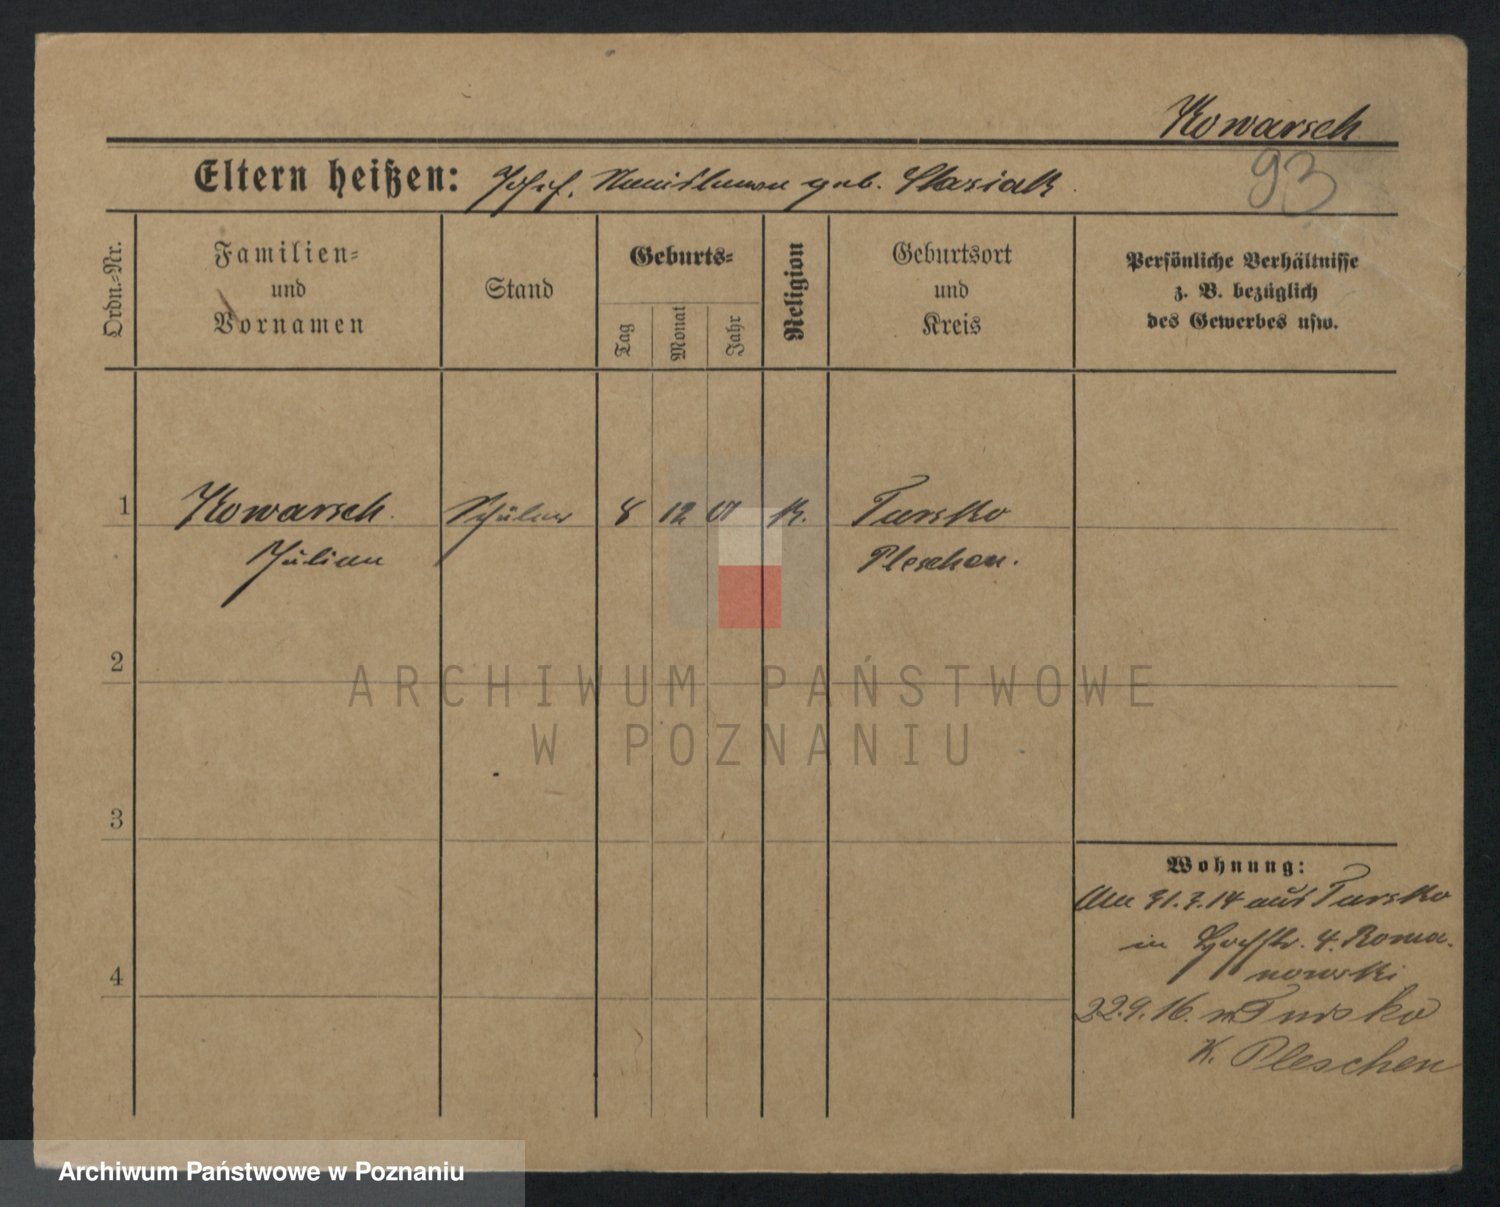 Kowarsch
93
Eltern heißen: Josef, geb. Stasiak.
Ordn.-Nr.
Familien-
und
Vornamen
Stand
Geburts-
Tag
Monat
Jahr
Religion
Geburtsort
und
Kreis
Persönliche Verhältnisse
z. B. bezüglich
des Gewerbes usw.
1 Kowarsch Schüler 8 12 01 k. Tursko
Julian Pleschen.
2
3
4
Wohnung:
Am 31.7.14 aus Tursko
in 4. Roma-
nowski
22.9.16. n Tursko
K. Pleschen
ARCHIWUM PAŃSTWOWE
W POZNANIU
Archiwum Państwowe w Poznaniu